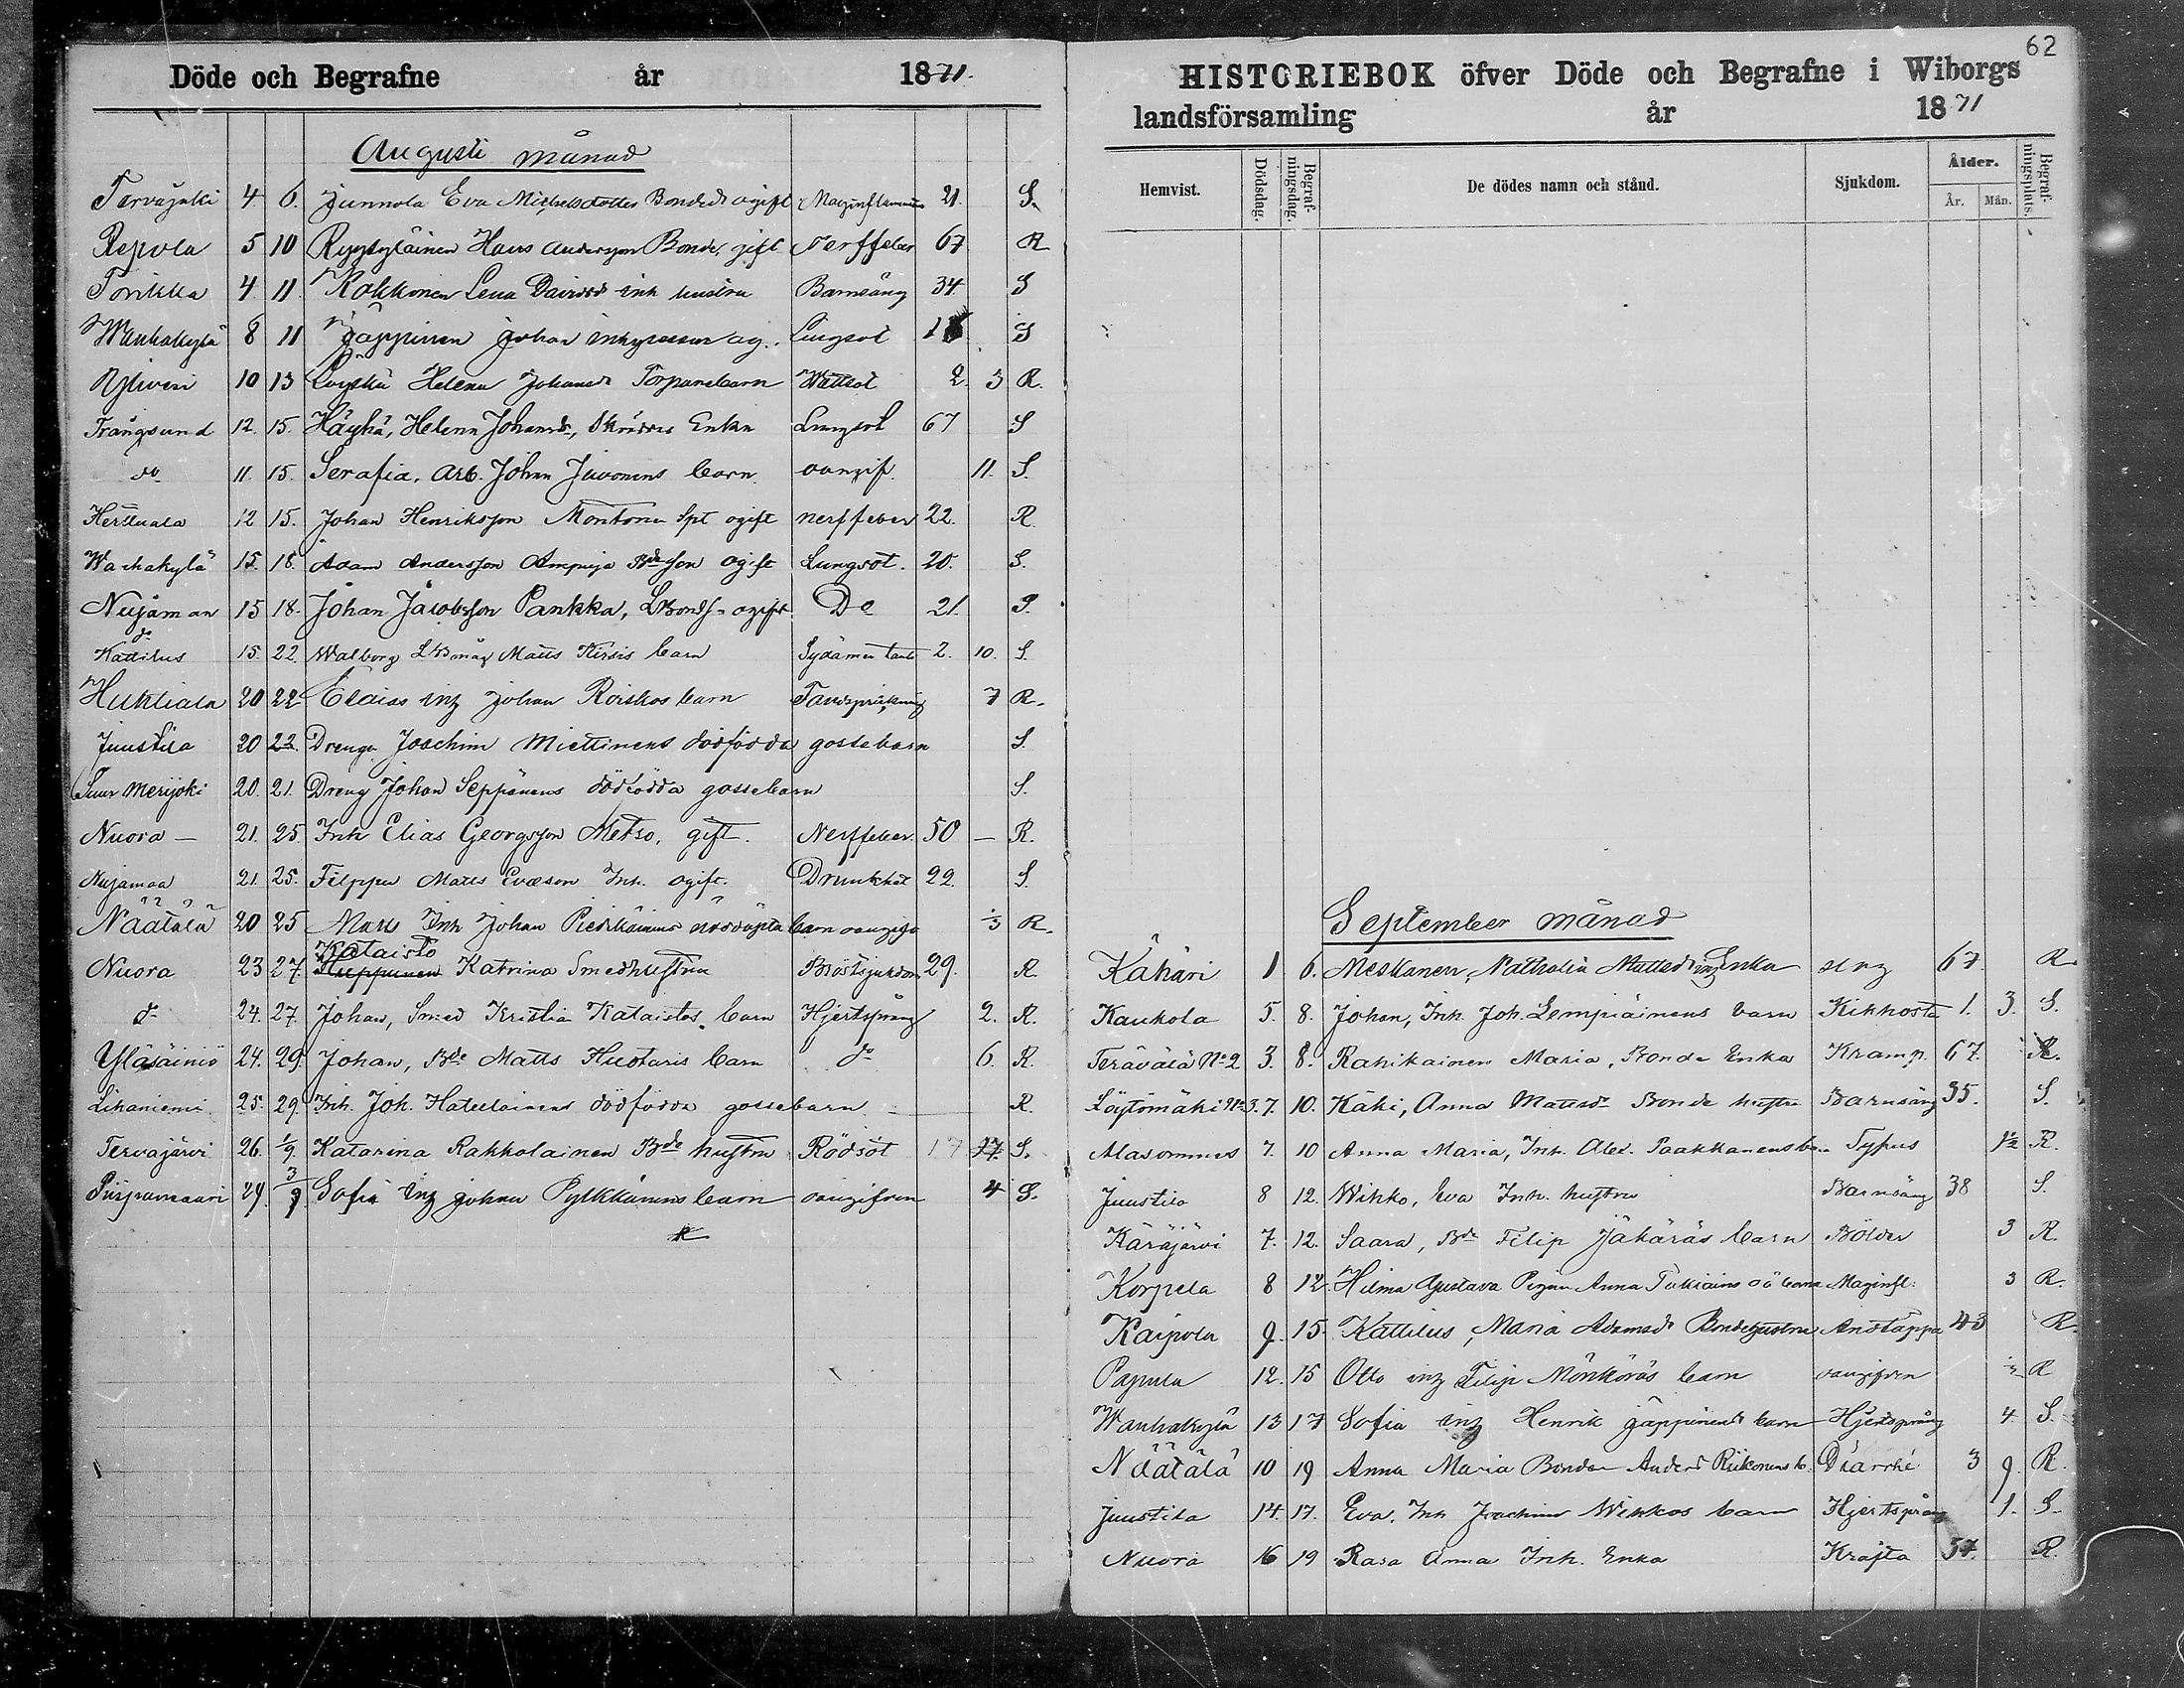 Döde och Begrafne år 1871.
Augusti månad
Tervajoki 4. 6. Junnola Eva Michelsdotter Bonded. ogift Maginflammation 21. S.
Repola 5 10 Hans Andersson Bonde, gift Nerffeber 67 R
Torikka 4 11. Kokkonen Lena Davidsd. inh hustru Barnsäng 34 S
Wanhakylä 8 11 Jäppinen Johan ag. Lungsot S
Yliveri 10 13 Helena Johansd. Torparebarn Wattsot 2. 3 R.
Trångsund 12. 15. Häyhä, Helena Johansd., Enka Lungsot 67 S
do 11. 15. Serafia, Arb. Johan Juvonens barn oangif. 11. S.
Herttuala 12 15. Johan Henriksson Montonen Spt ogift nerffeber 22. R.
Wachakylä 15. 18. Adam Andersson Ampuja Bde Son ogift Lungsot. 20. S.
Nuijaman 15 18. Johan Jacobsson Pankka, ogift Do 21. S.
do Kattilus 15. 22. Walborg Matts Kirsis barn Sydämen 2. 10. S.
Huhtiala 20 22 inh Johan Roiskos barn Tandsprickning 7 R.
Juustila 20 22. Drenge Joachim Miettinens dödfödda gossebarn S.
Suur Merijoki 20. 21. Dreng Johan Seppänens dödfödda gossebarn S.
Nuora — 21. 25. Inh Elias Georgsson Metso, gift. Nerffeber. 50 — R.
Nujamaa 21. 25. Filppu Matts Evæson Inh. ogift. Drunknat 22. S.
Näätälä 20 25 Matts Inh Johan Pietikäinens nöddöpta barn oangifv ½ R.
Nuora 23 27. Kataisto Katrina Smedhustru Bröstsjukdom 29. R.
do 24. 27. Johan, Smed Kristian Kataistos barn Hjertsprång 2. R.
Yläsäiniö 24. 29. Johan, Bde Matts Hustaris barn do 6. R.
Lihaniemi 25. 29. Inh. Joh. Hatelainens dödfödda gossebarn — R.
Tervajärvi 26. 1/9. Katarina Rakkolainen Bde hustru Rödsot 17 17. S.
29. 3/9. Sofia inh Johan Pylkkänens barn oangifven 4 S.
62
HISTORIEBOK öfver Döde och Begrafne i Wiborgs
landsförsamling år 1871
Hemvist. Dödsdag. Begrafningsdag. De dödes namn och stånd. Sjukdom. Ålder. År. Mån. Begrafningsplats.
September månad
Kähäri 1 6. Meskanen, Nathalia Mattsd. inh Enka slag 67. R.
Kaukola 5. 8. Johan, Inh. Joh. Lempiäinens barn Kikhosta 1. 3. S.
Terävälä No 2 3. 8. Rahikainen Maria, Bonde Enka Kramp. 67. R.
Löytömäki No 3. 7. 10. Käki, Anna Mattsdr Bonde hustru Barnsäng 35. S.
Alasommes 7. 10 Anna Maria, Inh. Alex. Paakkanens barn Typus 1½ R.
Juustila 8 12. Wihko, Eva Inh. hustru Barnsäng 38 S.
Käräjärvi 7. 12. Saara, Bde Filip Jäkäräs barn Bölder 3 R.
Korpela 8 12. Hilma Gustava Pigan Anna Tukiains oä barn Maginfl. 3 R.
Kaipola 9. 15. Kattilus, Maria Adamsd. Bondehustru Andtäppa 43 R.
Papula 12. 15 Otto inh Filip Mönkäräs barn oangifven ½ R
Wanhakylä 13 17 Sofia inh Henrik Jäppinens barn Hjertsprång 4. S.
Näätälä 10 19 Anna Maria Bonden Anders Riikonens b. Diarrhé 3 9. R.
Juustila 14. 17. Eva, Inh Joachim Wihkos barn Hjertsprång 1. S.
Nuora 16 19 Rasa Anna Inh. Enka Kräfta 57. R.